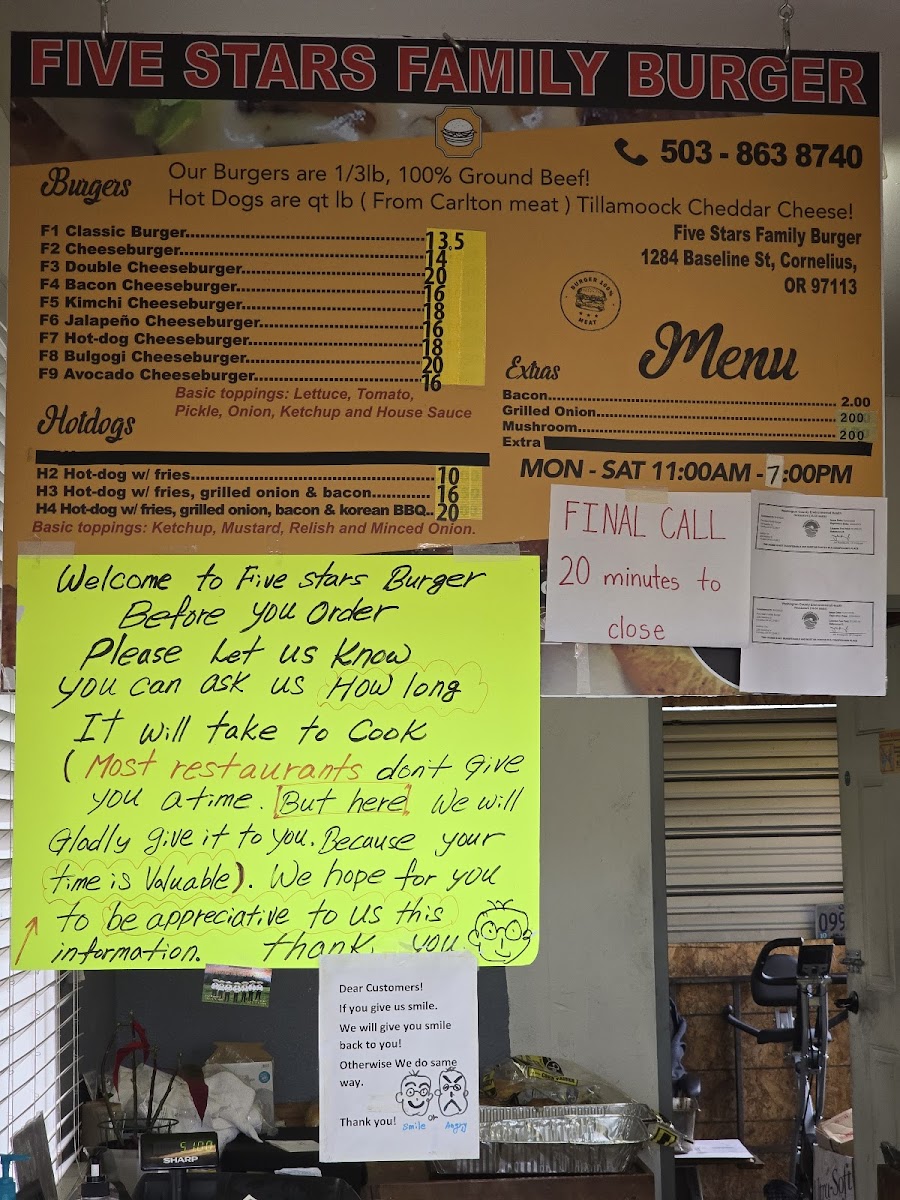 FIVE STARS FAMILY BURGER
503 - 863 8740
Burgers
Our Burgers are 1/3lb, 100% Ground Beef!
Hot Dogs are qt lb ( From Carlton meat ) Tillamoock Cheddar Cheese!
Five Stars Family Burger
1284 Baseline St, Cornelius,
OR 97113
F1 Classic Burger 13.5
F2 Cheeseburger 14
F3 Double Cheeseburger 20
F4 Bacon Cheeseburger 16
F5 Kimchi Cheeseburger 18
F6 Jalapeño Cheeseburger 16
F7 Hot-dog Cheeseburger 18
F8 Bulgogi Cheeseburger 20
F9 Avocado Cheeseburger 16
Basic toppings: Lettuce, Tomato,
Pickle, Onion, Ketchup and House Sauce
BURGER 100%
MEAT
Menu
Extras
Bacon 2.00
Grilled Onion 200
Mushroom 200
Extra
MON - SAT 11:00AM - 7:00PM
Hotdogs
H2 Hot-dog w/ fries 10
H3 Hot-dog w/ fries, grilled onion & bacon 16
H4 Hot-dog w/ fries, grilled onion, bacon & korean BBQ.. 20
Basic toppings: Ketchup, Mustard, Relish and Minced Onion.
FINAL CALL
20 minutes to
close
Welcome to Five stars Burger
Before you Order
Please Let us Know
you can ask us How long
It will take to Cook
(Most restaurants don't give
you a time. But here We will
Gladly give it to you. Because your
time is Valuable). We hope for you
to be appreciative to us this
information. thank you
Dear Customers!
If you give us smile.
We will give you smile
back to you!
Otherwise We do same
way.
Thank you!
Smile or Angry
SHARP
099